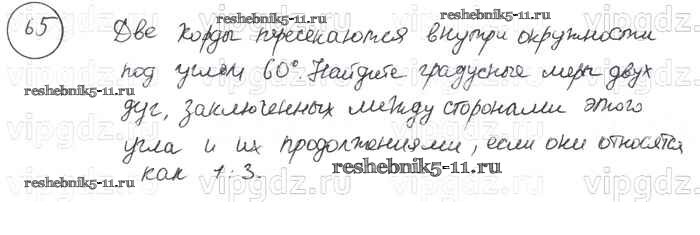 reshebnik5-11.ru
65 Две хорды пересекаются внутри окружности
под углом 60°. Найдите градусные меры двух
reshebnik5-11.ru reshebnik5-11.ru
дуг, заключенных между сторонами этого
угла и их продолжениями, если они относятся
как 1:3.
reshebnik5-11.ru reshebnik5-11.ru
vipgdz.ru